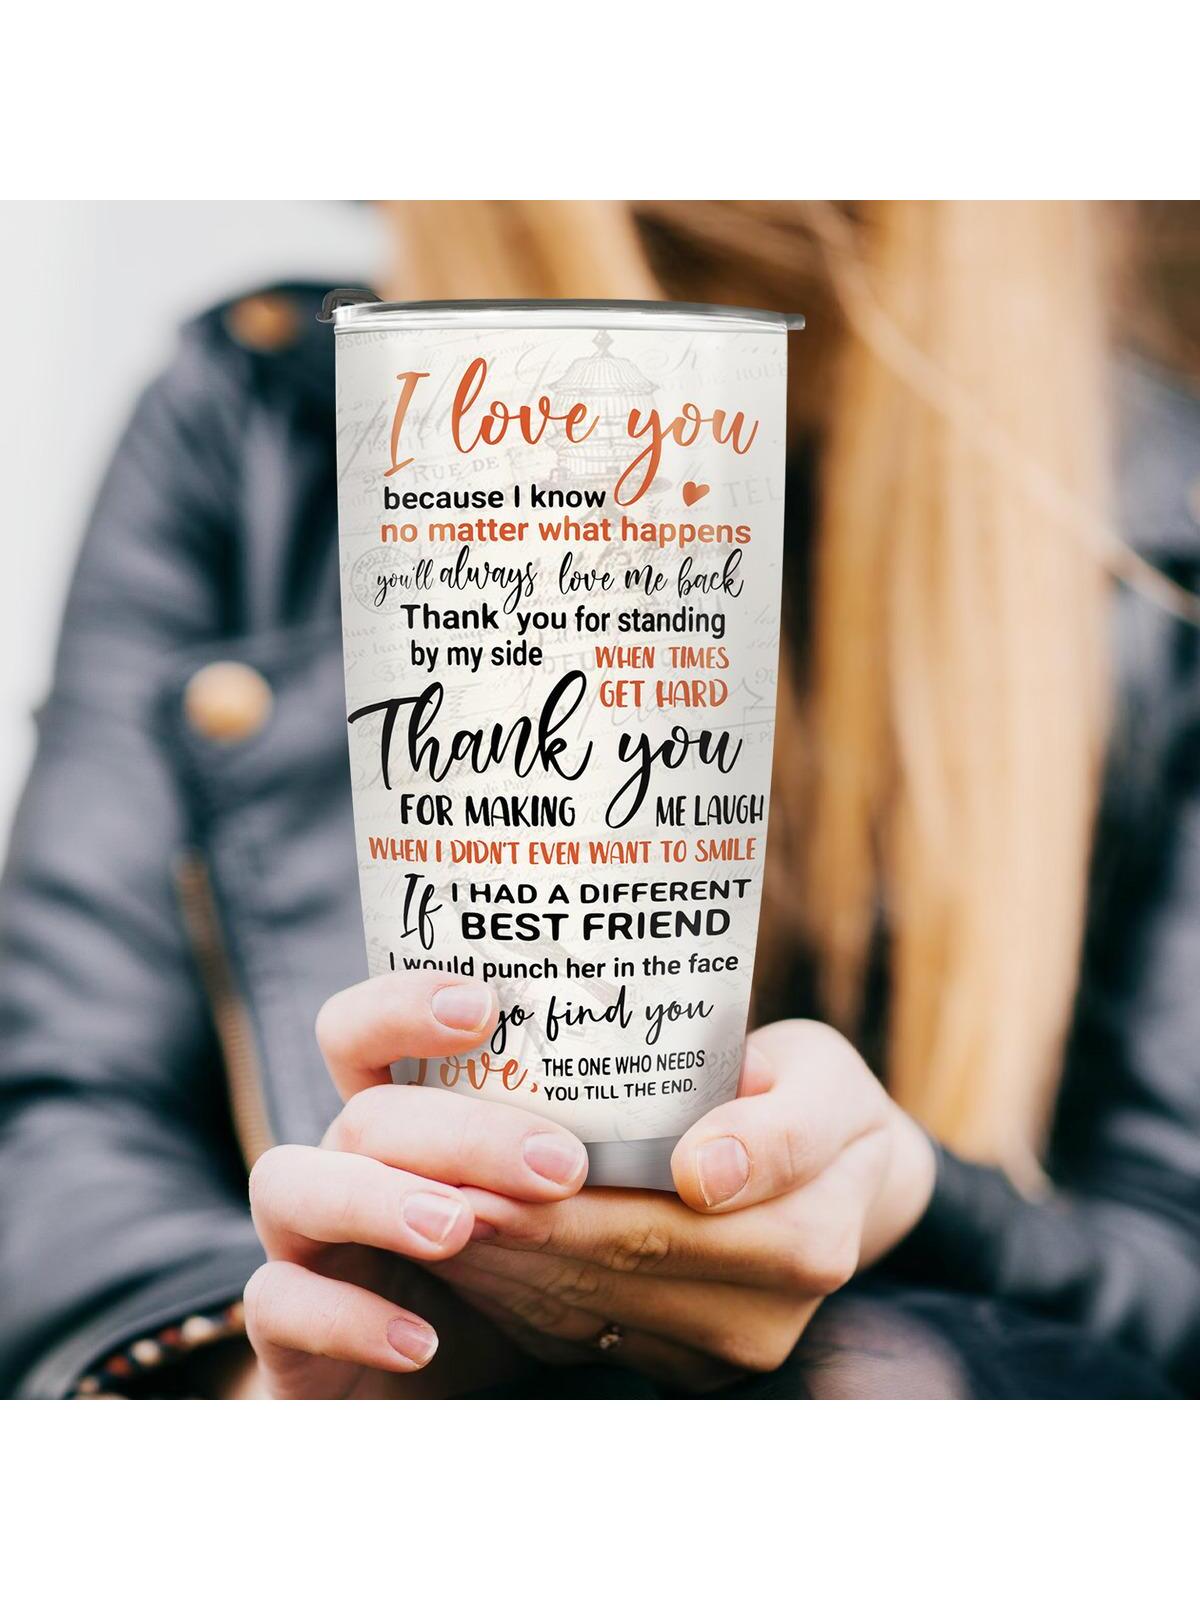 I love you
because I know
no matter what happens
you'll always love me back
Thank you for standing
by my side WHEN TIMES
GET HARD
Thank you
FOR MAKING ME LAUGH
WHEN I DIDN'T EVEN WANT TO SMILE
If I HAD A DIFFERENT
BEST FRIEND
I would punch her in the face
go find you
Love, THE ONE WHO NEEDS
YOU TILL THE END.
RUE DE